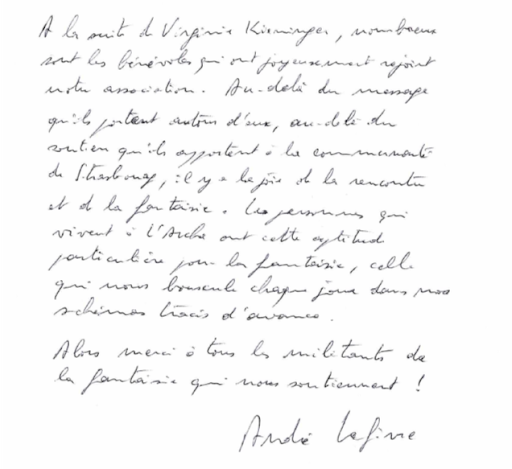 A la suite de Virginie Kieninger, nombreux
sont les bénévoles qui ont joyeusement rejoint
notre association. Au-delà du message
qu'ils portent autour d'eux, au-delà du
soutien qu'ils apportent à la communauté
de Strasbourg, il y a la joie de la rencontre
et de la fantaisie. Les personnes qui
vivent à l'Arche ont cette aptitude
particulière pour la fantaisie, celle
qui nous bouscule chaque jour dans nos
schémas tracés d'avance.
Alors merci à tous les militants de
la fantaisie qui nous soutiennent !
André